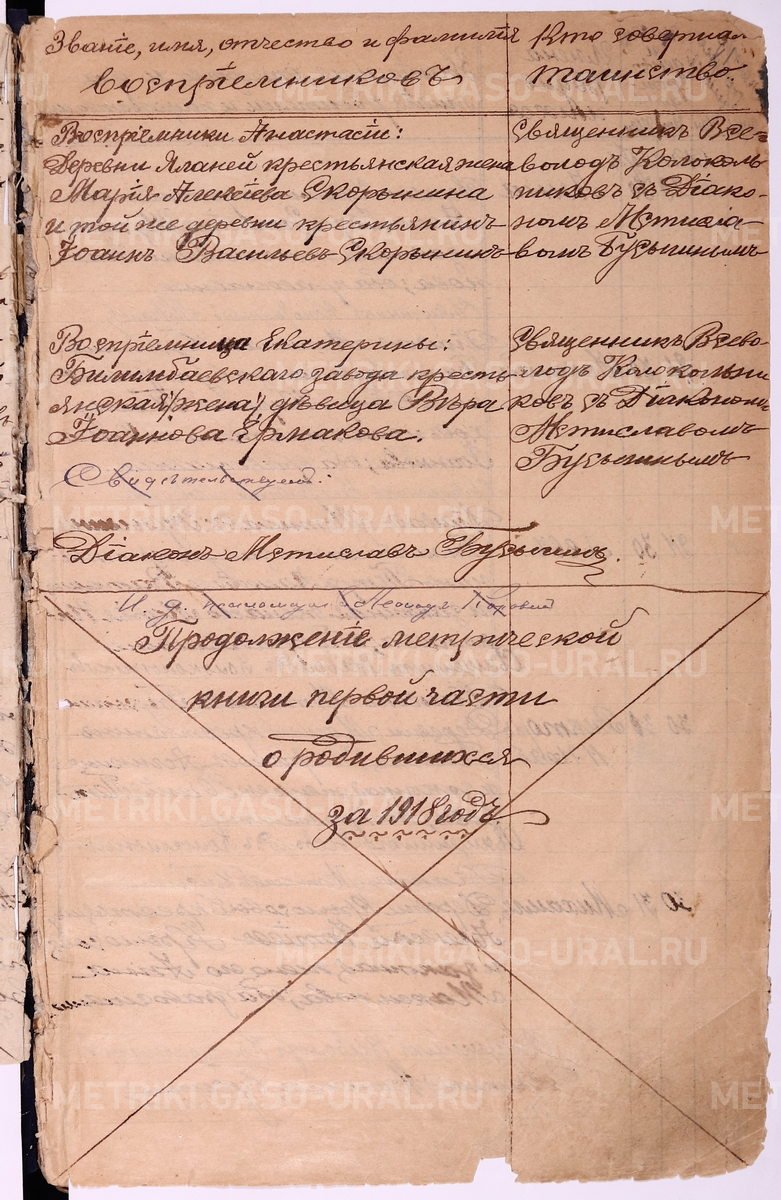 Званіе, имя, отчество и фамилія
воспріемниковъ
Кто совершал
таинство.
Воспріемники Анастасіи:
Деревни Яланей крестьянская жена
Марія Алексѣева Скорынина
и той же деревни крестьянинъ
Іоаннъ Васильевъ Скорынинъ
Священникъ Все-
володъ Колоколь
никовъ съ Діако-
номъ Мстисла-
вомъ Бусыгинымъ
Воспріемница Екатерины:
Билимбаевскаго завода кресть-
янская (жена), дѣвица Вѣра
Іоаннова Ермакова.
Священникъ Всево-
лодъ Колокольни
ковъ съ Діакономъ
Мстиславомъ
Бусыгинымъ
Свидѣтельствуемъ:
Діаконъ Мстиславъ Бусыгинъ.
И. д. псаломщика Леонидъ
Продолженіе метрической
книги первой части
о родившихся
за 1918 годъ
METRIKI.GASO-URAL.RU